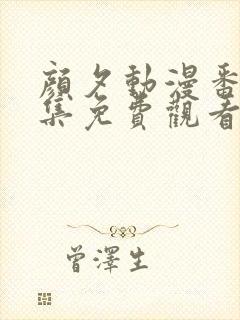 顏夕動漫番
集免費觀看
曾澤生